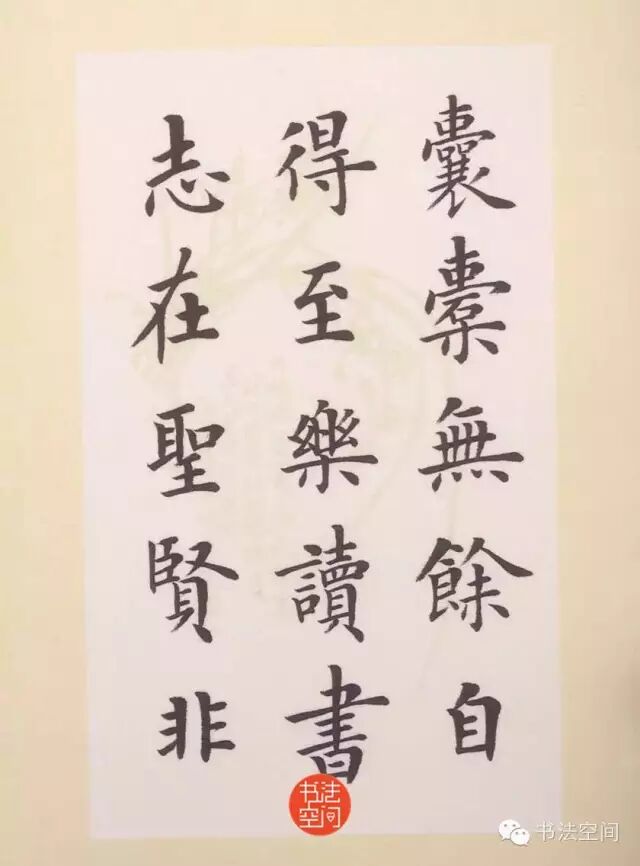 囊橐無餘自
得至樂讀書
志在聖賢非
书法
空间
书法空间